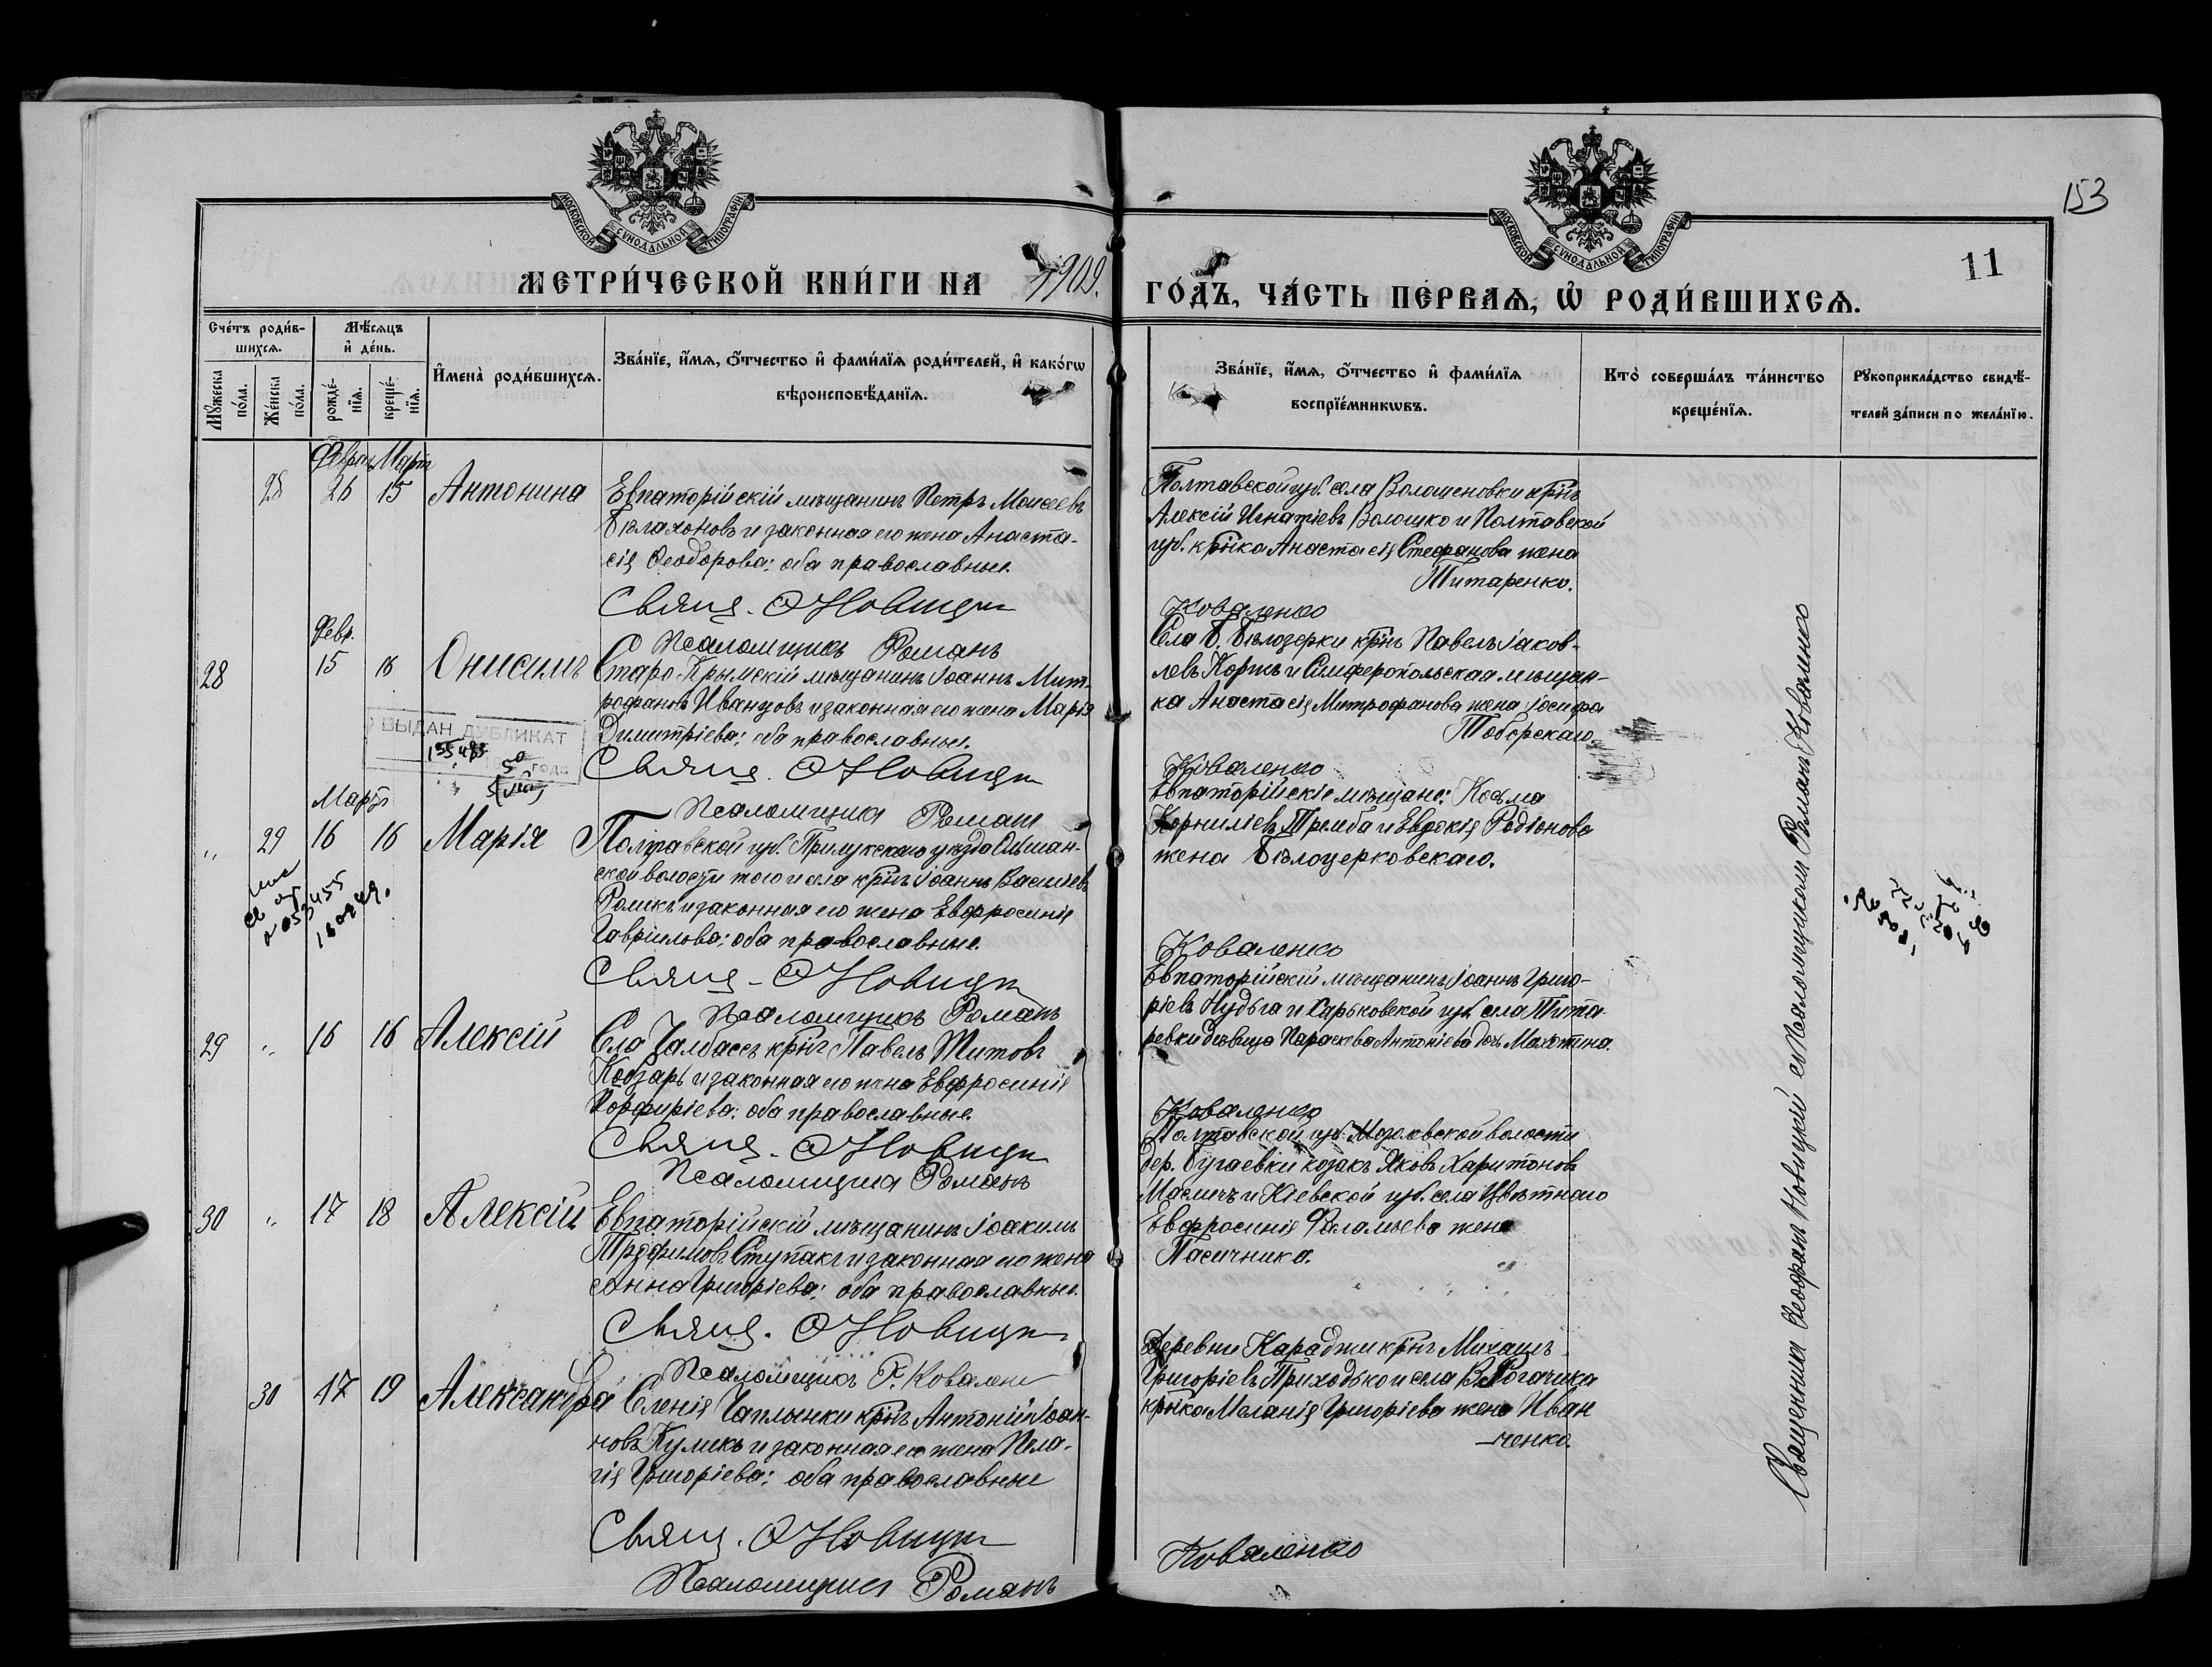 153
МОСКОВСКОЙ СѴНОДАЛЬНОЙ ТИПОГРАФІИ
МОСКОВСКОЙ СѴНОДАЛЬНОЙ ТИПОГРАФІИ
11
МЕТРИ́ЧЕСКОЙ КНИ́ГИ НА 1909.
ГО́ДЪ, ЧА́СТЬ ПЕ́РВАѦ, Ѡ҆ РОДИ́ВШИХСѦ.
Сче́тъ роди́в-
шихсѧ.
Мꙋ́жеска
по́ла.
Же́нска
по́ла.
Мѣ́сѧцъ
и҆ де́нь.
рожде́-
нїѧ.
креще́-
нїѧ.
И҆мена̀ роди́вшихсѧ.
Зва́нїе, и҆́мѧ, ѻ҆́тчество и҆ фами́лїѧ роди́телей, и҆ како́гѡ
вѣроисповѣ́данїѧ.
Зва́нїе, и҆́мѧ, ѻ҆́тчество и҆ фами́лїѧ
воспрїе́мникѡвъ.
Кто̀ соверша́лъ та́инство
креще́нїѧ.
Рꙋкоприкла́дство свидѣ́-
телей за́писи по жела́нїю.
Февр. Мартъ
28 26 15 Антонина
Евпаторійскій мѣщанинъ Петръ Моисеевъ
Бѣлахоновъ и законная его жена Анаста-
сія Ѳеодорова; оба православные.
Свящ. Ѳ Новицк
Псаломщикъ Романъ
Полтавской губ. села Волошеновки крнъ
Алексій Игнатіевъ Волошко и Полтавской
губ. крнка Анастасія Стефанова жена
Титаренко.
Коваленко
Февр.
28 15 16 Онисимъ
Старо-Крымскій мѣщанинъ Іоаннъ Мит-
рофановъ Иванцовъ и законная его жена Марія
Димитріева; оба православные.
Свящ. Ѳ Новицк
Псаломщикъ Романъ
Села Б. Бѣлозерки крнъ Павелъ Іаков-
левъ Коржъ и Симферопольская мѣщан-
ка Анастасія Митрофанова жена Іосифа
Тоберскаго.
Коваленко
ВЫДАН ДУБЛИКАТ
155483
50 года
Мартъ
„ 29 16 16 Марія
Полтавской губ. Прилукскаго уѣзда
ской волости того и села крнъ Іоаннъ Василіевъ
Ромекъ и законная его жена Евфросинія
Гавріилова; оба православные.
Свящ. Ѳ Новицк
Псаломщикъ Романъ
Евпаторійскіе мѣщане: Косьма
Корниліевъ Тремба и Евдокія Родіонова
жена Бѣлоцерковскаго.
Коваленко
29 „ 16 16 Алексій
Села Чалбассъ крнъ Павелъ Титовъ
Кобзарь и законная его жена Евфросинія
Порфиріева; оба православные.
Свящ. Ѳ Новицк
Псаломщикъ Романъ
Евпаторійскій мѣщанинъ Іоаннъ Григо-
ріевъ Нудьга и Харьковской губ. села Тита-
ревки дѣвица Параскева Антоніева дочь Махотина.
Коваленко
30 „ 17 18 Алексій
Евпаторійскій мѣщанинъ Іоакимъ
Трофимовъ Ступакъ и законная его жена
Анна Григоріева; оба православные.
Свящ. Ѳ Новицк
Псаломщикъ Р. Ковален
Полтавской губ. волости
дер. Бугаевки козакъ Яковъ Харитоновъ
и Кіевской губ. села Цвѣтнаго
Евфросинія жена
Пасичника.
30 17 19 Александра
Селенія Чаплынки крнъ Антоній Іоан-
новъ Куликъ и законная его жена Пела-
гія Григоріева; оба православные
Свящ. Ѳ Новицк
Псаломщикъ Романъ
Деревни Караджи крнъ Михаилъ
Григоріевъ Приходько и села В. Рогачика
крнка Меланія Григоріева жена Иван
-ченко.
Коваленко
Священникъ Ѳеофанъ Новицкій съ псаломщикомъ Романъ Коваленко